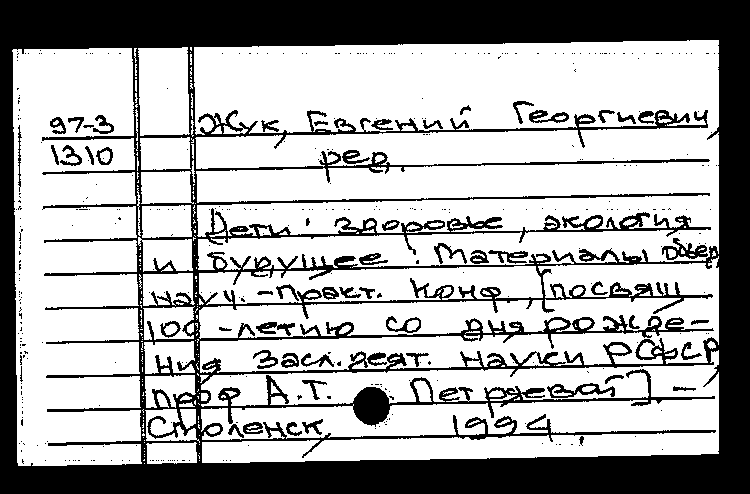 97-3 Жук, Евгений Георгиевич,
1310 ред.
Дети: здоровье, экология
и будущее: Материалы объед.
науч.-практ. конф., [посвящ.
100-летию со дня рожде-
ния засл. деят. науки РСФСР,
проф. А.Т. Петряевой]. -
Смоленск, 1994.